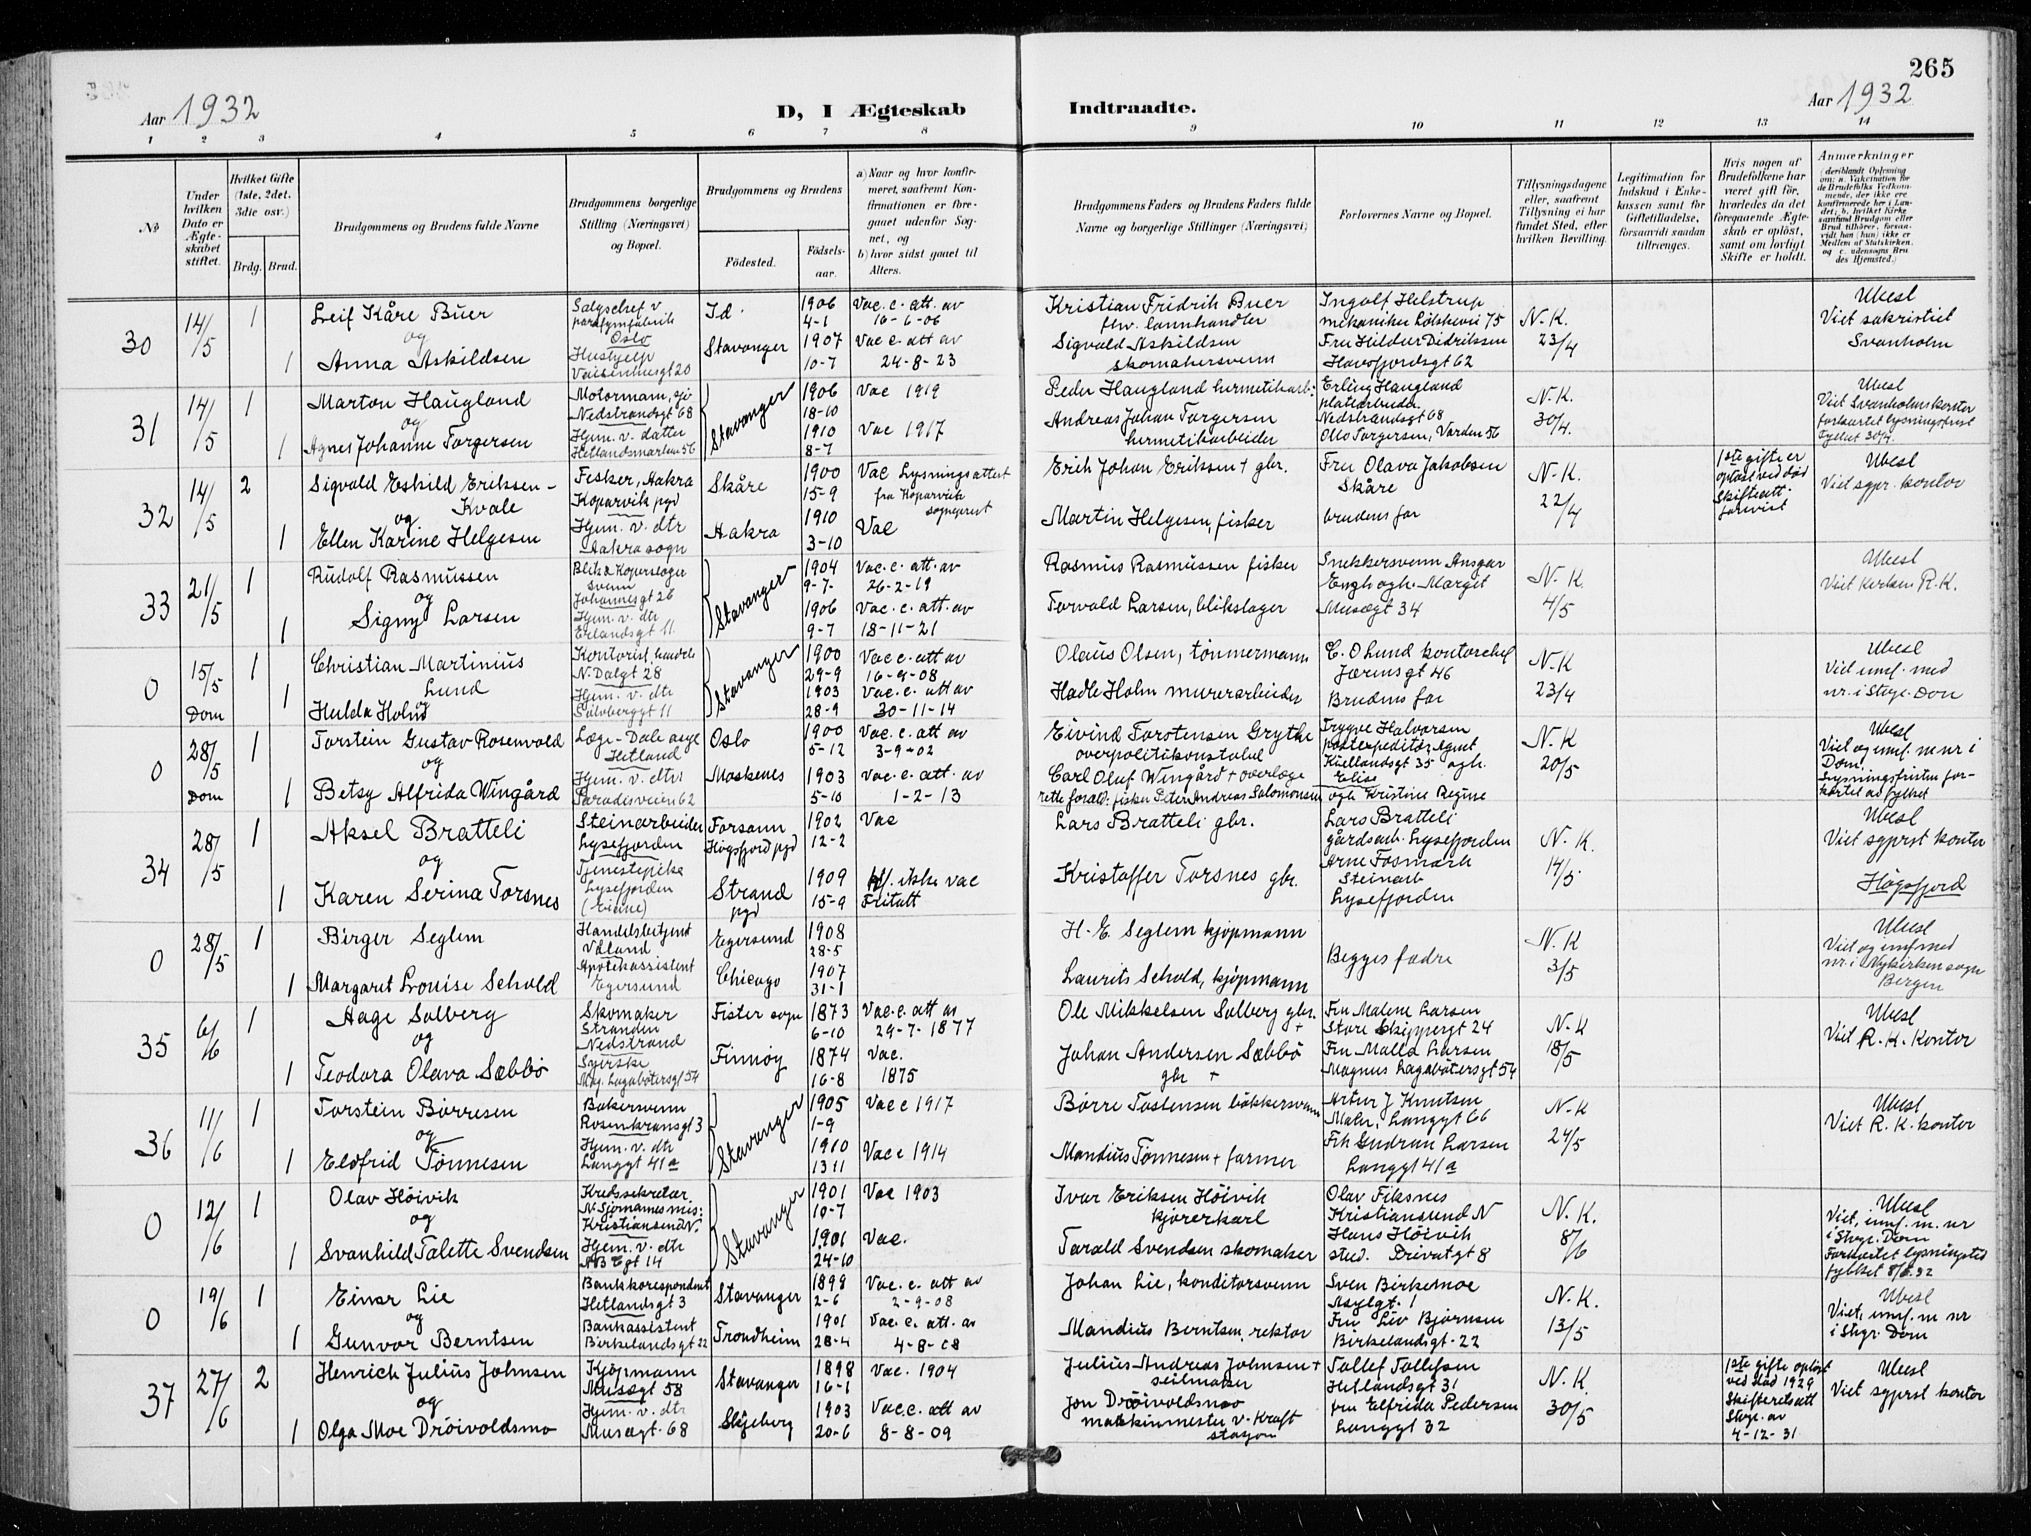 265
Aar 1932
D, I Ægteskab Indtraadte.
Aar 1932
1 2 3 4 5 6 7 8 9 10 11 12 13 14
№
Under hvilken Dato er Ægteskabet stiftet.
Hvilket Gifte (1ste, 2det, 3die osv.)
Brdg. Brud.
Brudgommens og Brudens fulde Navne
Brudgommens borgerlige Stilling (Næringsvei) og Bopæl.
Brudgommens og Brudens
Fødested.
Fødselsaar.
a) Naar og hvor konfirmeret, saafremt Konfirmationen er foregaaet udenfor Sognet, og
b) hvor sidst gaaet til Alters.
Brudgommens Faders og Brudens Faders fulde Navne og borgerlige Stillinger (Næringsvei)
Forlovernes Navne og Bopæl.
Tillysningsdagene eller, saafremt Tillysning ei har fundet Sted, efter hvilken Bevilling.
Legitimation for Indskud i Enkekassen samt for Giftetilladelse, forsaavidt saadan tiltrænges.
Hvis nogen af Brudefolkene har været gift før, hvorledes da det foregaaende Ægteskab er opløst, samt om lovligt Skifte er holdt.
Anmærkninger
30
14/5
1
Leif Kåre Buer
og
1 Anna Askildsen
Oslo
Vaisenhusgt 20
Id.
Stavanger
1906
4-1
1907
10-7
Vac. e. att. av
10-6-06
Vac e att av
24-8-23
Kristian Fridrik Buer
Sigvald Askildsen
skomakersvenn
Ingolf Helstrup
Fru Hildur Didriksen
Havsfjordsgt 62
N.K.
23/4
Ubesl
Viet sakristiet
Svanholm
31
14/5
1
Marton Haugland
og
1 Agnes Johanne Torgersen
Nedstrandsgt 68
Hjem. v. datter
Stavanger
1906
18-10
1910
8-7
Vac 1919
Vac 1917
Peder Haugland hermetikarb.
Andreas Johan Torgersen
hermetikarbeider
Erling Haugland
Nedstrandsgt 68
Olto Torgersen, Varden 56
N.K.
30/4.
Ubesl
Viet Svanholms kontor
32
14/5
2
Sigvald Eskild Eriksen-
Kvale
og
1 Ellen Karine Helgesen
Fisker, Aakra
Kopervik pgd
Hjem. v. dtr
Aakra sogn
Skåre
Aakra
1900
15-9
1910
3-10
Vac Lysningsattest
fra Kopervik
sogneprest
Vac
Erik Johan Eriksen + gbr.
Martin Helgesen, fisker
Fru Olava Jakobsen
Skåre
brudens far
N.K.
22/4
1ste gifte er
opløst ved død
Skifteatt.
forevist
Ubesl
Viet sgpr. kontor
33
21/5
1
Rudolf Rasmussen
og
1 Signy Larsen
svenn
Johannesgt 26
Hjem. v. dtr
Erlandsgt 11
Stavanger
1904
9-7-
1906
9-7
Vac. e. att. av
26-2-19
Vac. e. att. av
18-11-21
Rasmus Rasmussen fisker
Torvald Larsen, blikslager
Snekkersvenn Ansgar
Musægt 34
N.K.
4/5
Ubesl
Viet kirken R.K.
0
15/5
Dom
1
Christian Martinius
Lund
1 Hulda Holm
N. Dalgt 28
Hjem. v. dtr
Sølvberggt 11
Stavanger
1900
29-9
1903
28-9
Vac e. att av
16-9-08
Vac. e. att av
30-11-14
Olaus Olsen, tønmermann
Hadle Holm murarbeider
C. O Lund kontorchef
Jærensgt 46
Brudens far
N.K
23/4
Ubesl
Viet umf. med
nr. i Stvgr. Dom
0
28/5
Dom
1
Torstein Gustav Rosenvold
og
1 Betsy Alfrida Wingård
Læge - Dale asyl
Hetland
Hjem. v. dtr
Paradisveien 62
Oslo
Moskenes
1900
5-12
1903
5-10
Vac. e. att av
3-9-02
Vac. e. att. av
1-2-13
Eivind Torstensen Grytke
overpolitikonstabel
Carl Oluf Wingård + overlæge
rette forald: fisker Peter Andreas Salomonsen
Trygve Halvorsen
Kiellandsgt 35 ogh.
Elise
ogh Kristine Regine
N.K
20/5
Ubesl
Viet og umf. m nr i
Dom.
34
28/5
1
Aksel Bratteli
og
1 Karen Serina Torsnes
Steinarbeider
Lysefjorden
Tjenestepike
Lysefjorden
Forsann
Høgsfjord pgd
Strand
pgd
1902
12-2
1909
15-9
Vac
ikke vac
Fritatt
Lars Bratteli gbr.
Kristoffer Torsnes gbr.
Lars Bratteli
gårdsarb. Lysefjorden
Arne Fosmark
Steinarb
Lysefjorden
N.K.
14/5
Ubesl
Viet sgprst kontor
Høgsfjord
0
28/5
1
Birger Seglem
1 Margaret Louise Schold
Apotekassistent
Egersund
Egersund
Chicago
1908
28-5
1907
31-1
H. E. Seglem kjøpmann
Laurits Schold, kjøpmann
Begges fædre
N.K
3/5
Ubesl
Viet og umf med
nr. i Nykirken sogn
Bergen
35
6/6
1
Aage Solberg
og
1 Teodora Olava Sæbbø
Skomaker
Stranden
Nedstrand
Syerske
Mag. Lagabøtersgt 54
Fister sogn
Finnøy
1873
6-10
1874
16-8
Vac. e. att av
29-7-1877
Vac.
1875
Ole Mikkelsen Solberg gbr.
+
Johan Andersen Sæbbø
gbr +
Fru Malene Larsen
Store Skippergt 24
Fru Malla Larsen
Magnus Lagabøtersgt 54
N.K
18/5
Ubesl
Viet R.K. Kontor
36
11/6
1
Torstein Børresen
og
1 Elofrid Tønnesen
Bakersvenn
Rosenkransgt 3
Hjem. v. dtr
Langgt 41a
Stavanger
1905
1-9
1910
13 11
Vac e 1917
Vac e 1914
Børre Tostensen bøkkersvenn
Mandius Tønnesen + farmer
Artur J Knutsen
Maler, Langgt 66
Frk Gudrun Larsen
Langgt 41a
N.K
24/5
Ubesl
Viet R. K. kontor
0
12/6
1
Olav Höivik
og
1 Svanhild Talette Svendsen
Kredssekretær
N. Sjømannsmis:
Kristiansund N.
Hjem. v. dtr
Stavanger
1901
10-7
1901
24-10
Vac 1903
Vac.
Ivar Eriksen Höivik
kjörerkarl
Tarald Svendsen skomaker
Olav Fiksnes
Kristiansund N
Hans Höivik
stud. Privatgt 8
N.K.
8/6
Ubesl
Viet, umf. m. nr
i Stvgr. Dom
Forkortet lysningstid
fylket 8/6.32
0
19/6
1
Einar Lie
og
1 Gunvor Berntsen
Bankkorespondent
Hetlandsgt 3
Bankassistent
Birkelandsgt 22
Stavanger
Trondheim
1898
2-6
1901
28-4
Vac. e. att av
2-9-08
Vac. e. att. av
4-8-08
Johan Lie, konditorsvenn
Mandius Berntsen, rektor
Sven Birkemoe
Asylgt. 1
Fru Liv Bjørnsen
Birkelandsgt. 22
N.K.
13/5
Ubesl
Viet, umf. m nr
i Stvgr. Dom
37
27/6
2
Henrich Julius Johnsen
og
1 Olga Moe Dröivoldsmo
Kjöpmann
Musægt 58
Hjem. v. dtr
Musægt. 68
Stavanger
Skjeberg
1898
16-1
1903
20-6
Vac. 1904
Vac.e. att av
8-8-09
Julius Andreas Johnsen +
seilmaker
Jon Dröivoldsmo
maskinmester v. Kraft
stasjon
Tollef Tollefsen
Hetlandsgt 31
fru Elfrida Pedersen
Langgt 32
N.K.
30/5
1ste gifte opløst
ved död 1929
Skifteretsatt
Stvgr. av
4-12-31
Ubesl
Viet sgprst kontor